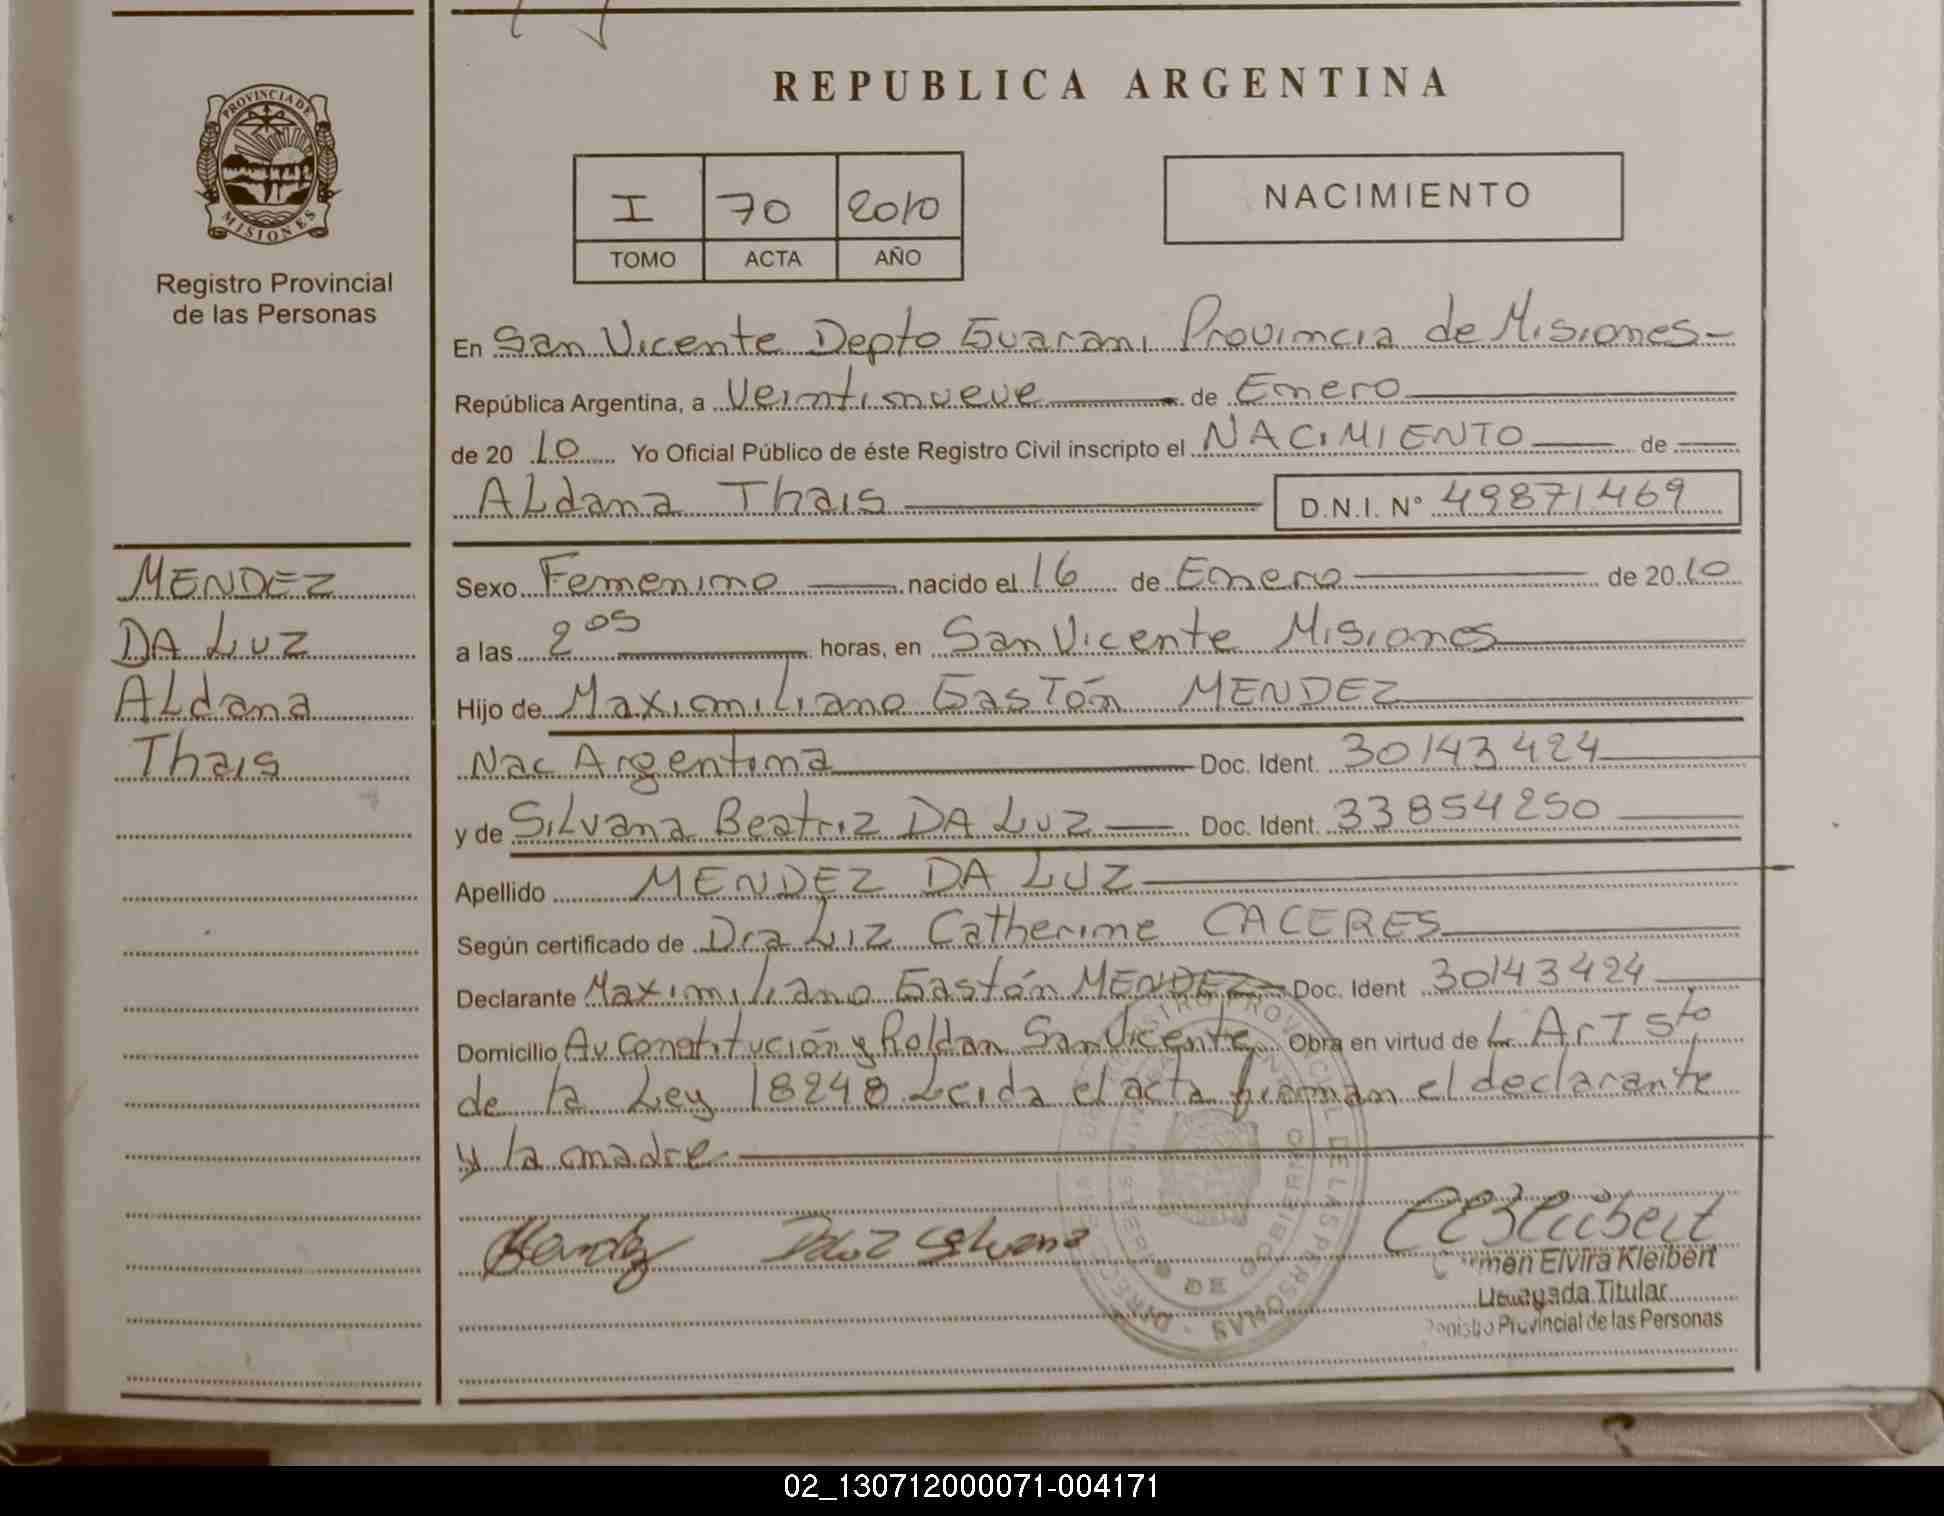 REPUBLICA ARGENTINA
PROVINCIA DE
MISIONES
Registro Provincial
de las Personas
I 70 2010
TOMO ACTA AÑO
NACIMIENTO
En San Vicente Depto Guarani Provincia de Misiones
República Argentina, a Veintinueve de Enero
de 20 10 Yo Oficial Público de éste Registro Civil inscripto el NACIMIENTO de
ALdana Thais D.N.I. Nº 49871469
MENDEZ
DA LUZ
ALdana
Thais
Sexo Femenino nacido el 16 de Enero de 20 10
a las 2 05 horas, en San Vicente Misiones
Hijo de Maximiliano Gastón MENDEZ
Nac Argentina Doc. Ident. 30143424
y de SiLvana Beatriz DA LUZ Doc. Ident. 33854250
Apellido MENDEZ DA LUZ
Según certificado de Dra Liz Catherine CACERES
Declarante Maximiliano Gastón MENDEZ Doc. Ident 30143424
Domicilio Av Constitución y Roldan San Vicente Obra en virtud de L ArT 5to
de la Ley 18248 Leida el acta firman el declarante
y la madre
Mendez DaLuz Silvana
Elvira Kleibert
Titular
Provincial de las Personas
02_130712000071-004171